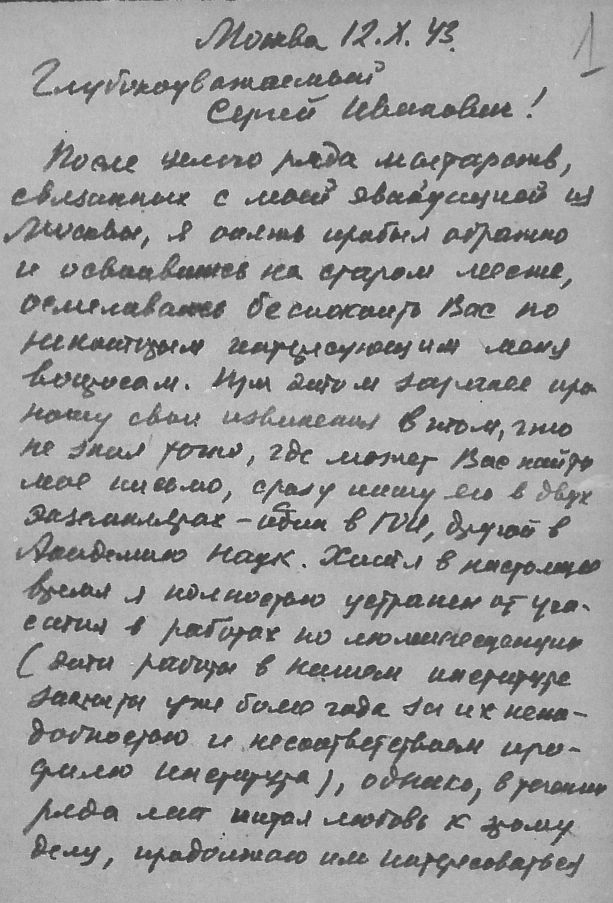 Москва 12.X.43.
1
Глубокоуважаемый
Сергей Иванович!
После целого ряда мытарств,
связанных с моей эвакуацией из
Москвы, я опять прибыл обратно
и осваиваясь на старом месте,
осмеливаюсь беспокоить Вас по
некоторым интересующим меня
вопросам. При этом заранее при-
ношу свои извинения в том, что
не зная точно, где может Вас найти
мое письмо, сразу пишу его в двух
экземплярах – один в ГОИ, другой в
Академию Наук. Хотя в настоящее
время я полностью устранен от уча-
стия в работах по люминесценции
(эти работы в нашем институте
закрыты уже более года за их нена-
добностью и несоответствием про-
филю института), однако, в течении
ряда лет питая любовь к этому
делу, продолжаю им интересоваться